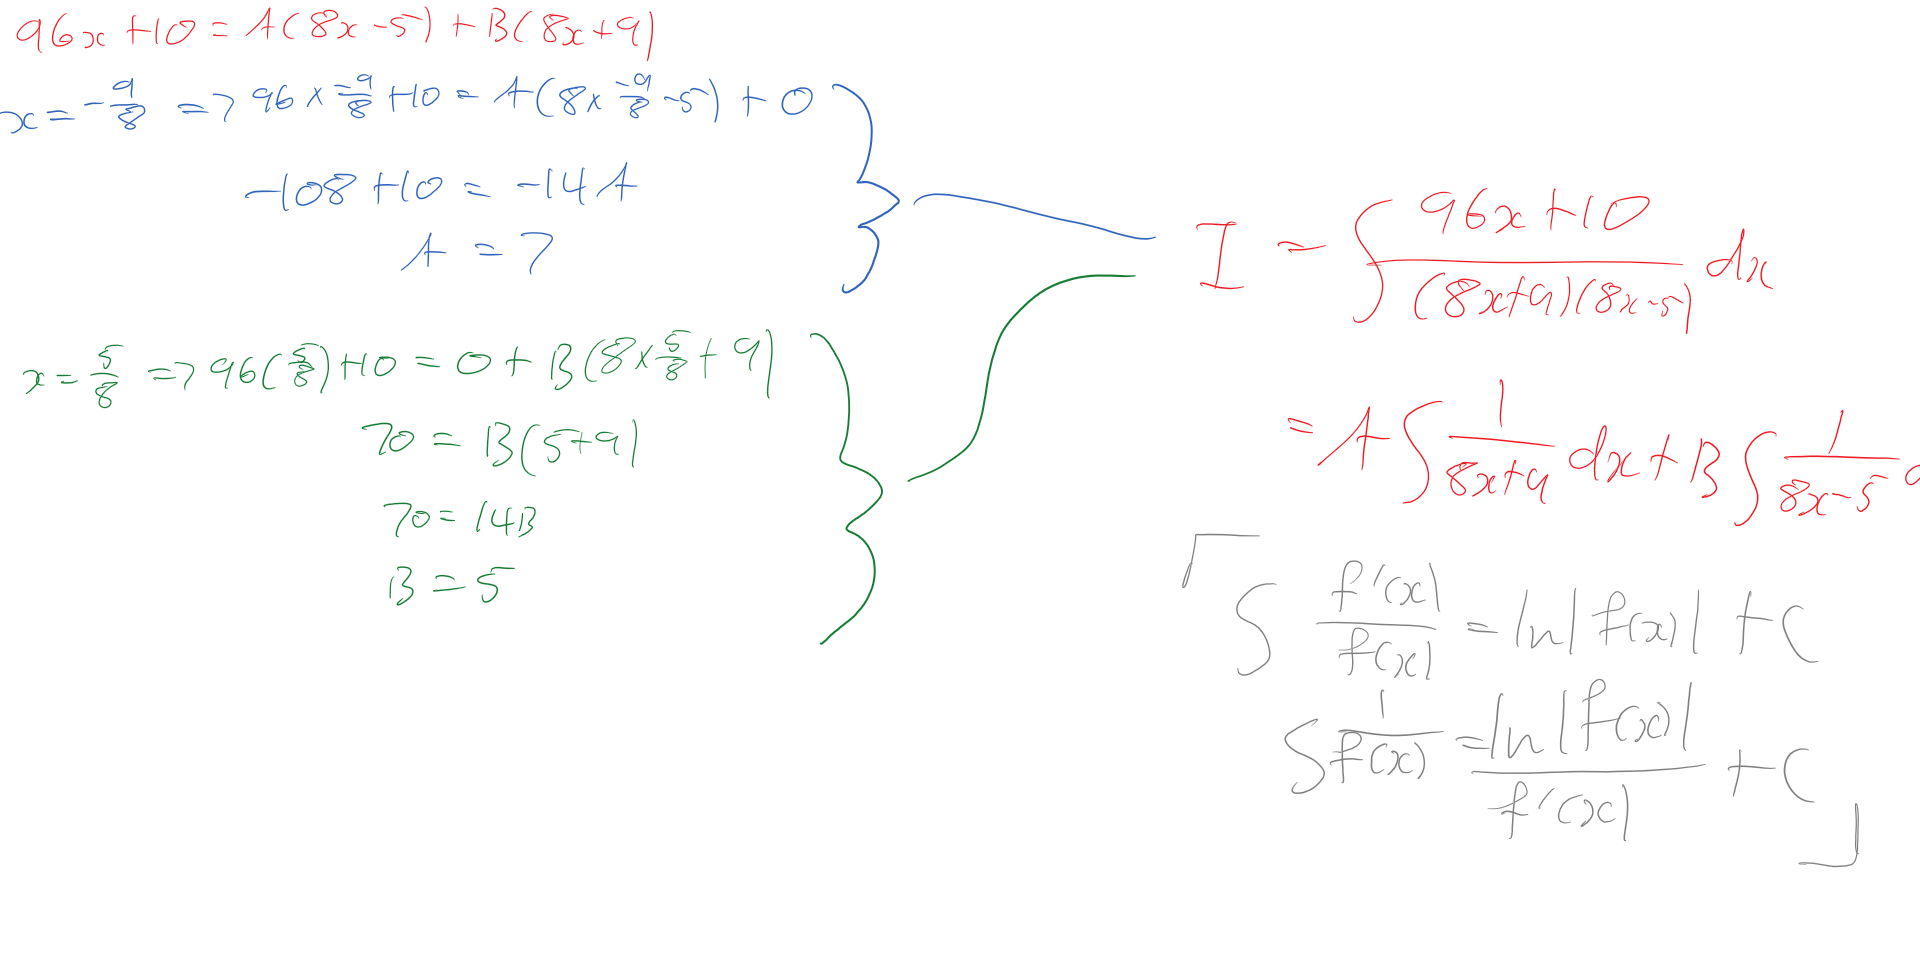 96x + 10 = A(8x - 5) + B(8x + 9)
x = -9/8 => 96 × -9/8 + 10 = A(8 × -9/8 - 5) + 0
-108 + 10 = -14A
A = 7
x = 5/8 => 96(5/8) + 10 = 0 + B(8 × 5/8 + 9)
70 = B(5 + 9)
70 = 14B
B = 5
I = ∫ (96x + 10)/((8x + 9)(8x - 5)) dx
= A ∫ 1/(8x + 9) dx + B ∫ 1/(8x - 5)
∫ f'(x)/f(x) = ln|f(x)| + C
∫ 1/f(x) = ln|f(x)|/f'(x) + C